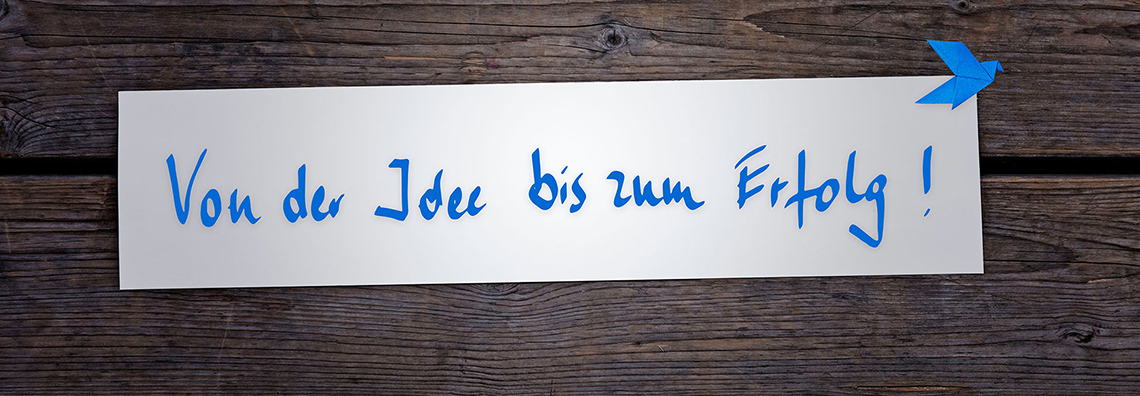 Von der Idee bis zum Erfolg!